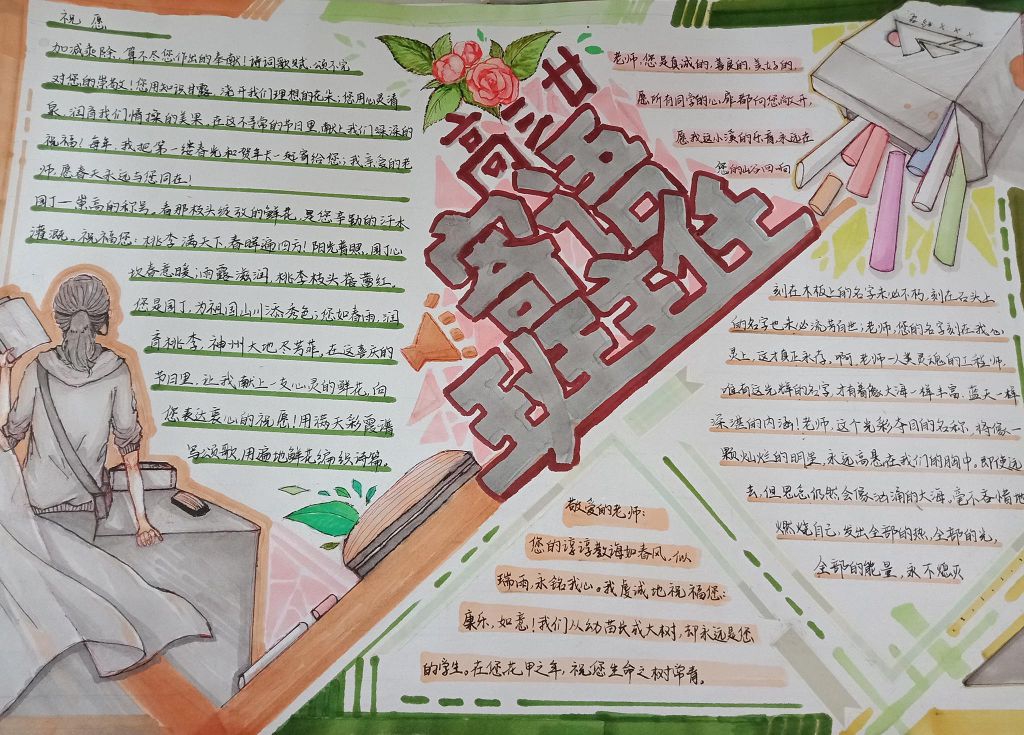 祝愿
加减乘除,算不尽您作出的奉献!诗词歌赋,颂不完
对您的崇敬!您用知识甘露,浇开我们理想的花朵;您用心灵清
泉,润育我们情操的美果。在这不寻常的节日里,献上我们深深的
祝福!每年,我把第一缕春光和贺年卡一起寄给您;我亲爱的老
师,愿春天永远与您同在!
园丁——崇高的称号。看那枝头绽放的鲜花,是您辛勤的汗水
灌溉。祝福您:桃李满天下,春晖遍四方!阳光普照,园丁心
坎春意暖;雨露滋润,桃李枝头蓓蕾红。
您是园丁,为祖国山川添秀色;您如春雨,润
育桃李,神州大地尽芳菲。在这喜庆的
节日里,让我献上一支心灵的鲜花,向
您表达衷心的祝愿!用满天彩霞谱
写颂歌,用遍地鲜花编织诗篇。
高三廿五
寄语
班主任
老师,您是真诚的,善良的,美好的,
愿所有同学的心扉都向您敞开,
愿我这小溪的乐音永远在
您的山谷回响
刻在木板上的名字未必不朽,刻在石头上
的名字也未必流芳百世;老师,您的名字刻在我心
灵上,这才真正永存。啊,老师——人类灵魂的工程师,
唯有这光辉的名字,才有着像大海一样丰富,蓝天一样
深湛的内涵!老师,这个光彩夺目的名称,将像一
颗灿烂的明星,永远高悬在我们的胸中。即使远
去,但思念仍然会像汹涌的大海,毫不吝惜地
燃烧自己,发出全部的热,全部的光,
全部的能量,永不熄灭
敬爱的老师:
您的谆谆教诲如春风,似
瑞雨,永铭我心。我虔诚地祝福您:
康乐,如意!我们从幼苗长成大树,却永远是您
的学生。在您花甲之年,祝您生命之树常青。